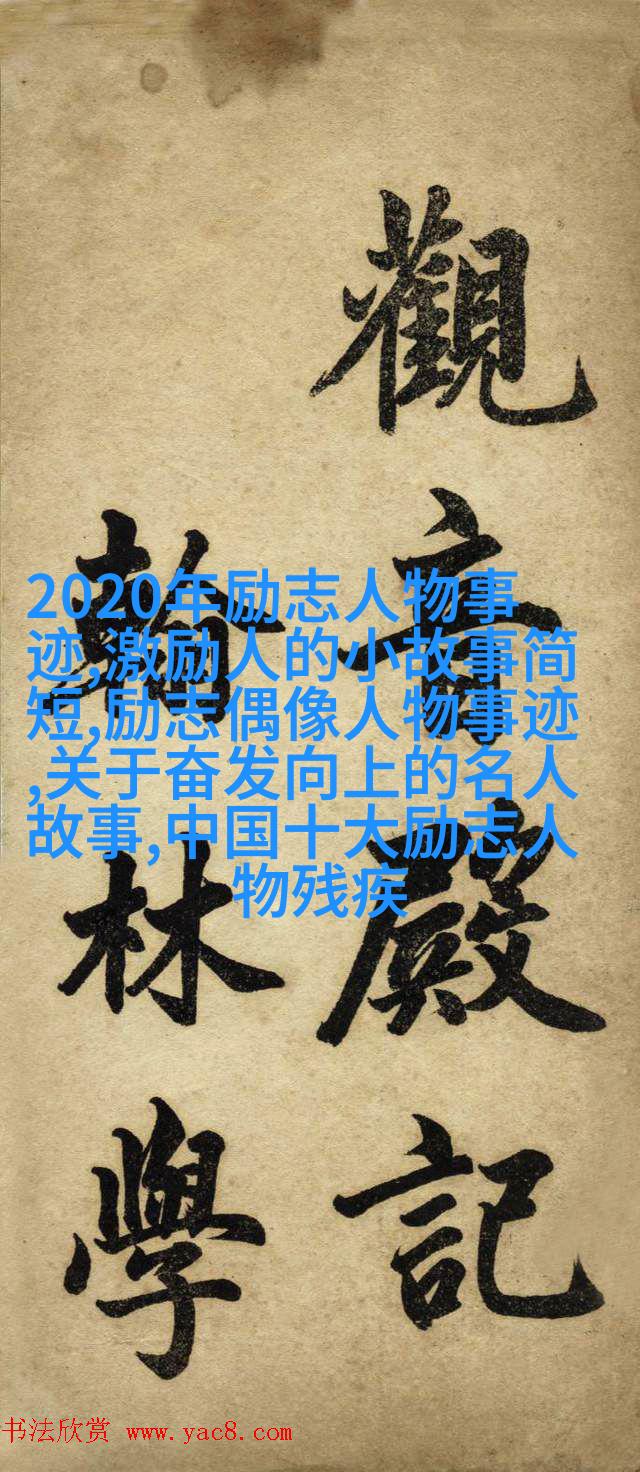 觀音殿記
翰林學
2020年励志人物事
迹,激励人的小故事简
短,励志偶像人物事迹
,关于奋发向上的名人
故事,中国十大励志人
物残疾
书法欣赏 www.yac8.com